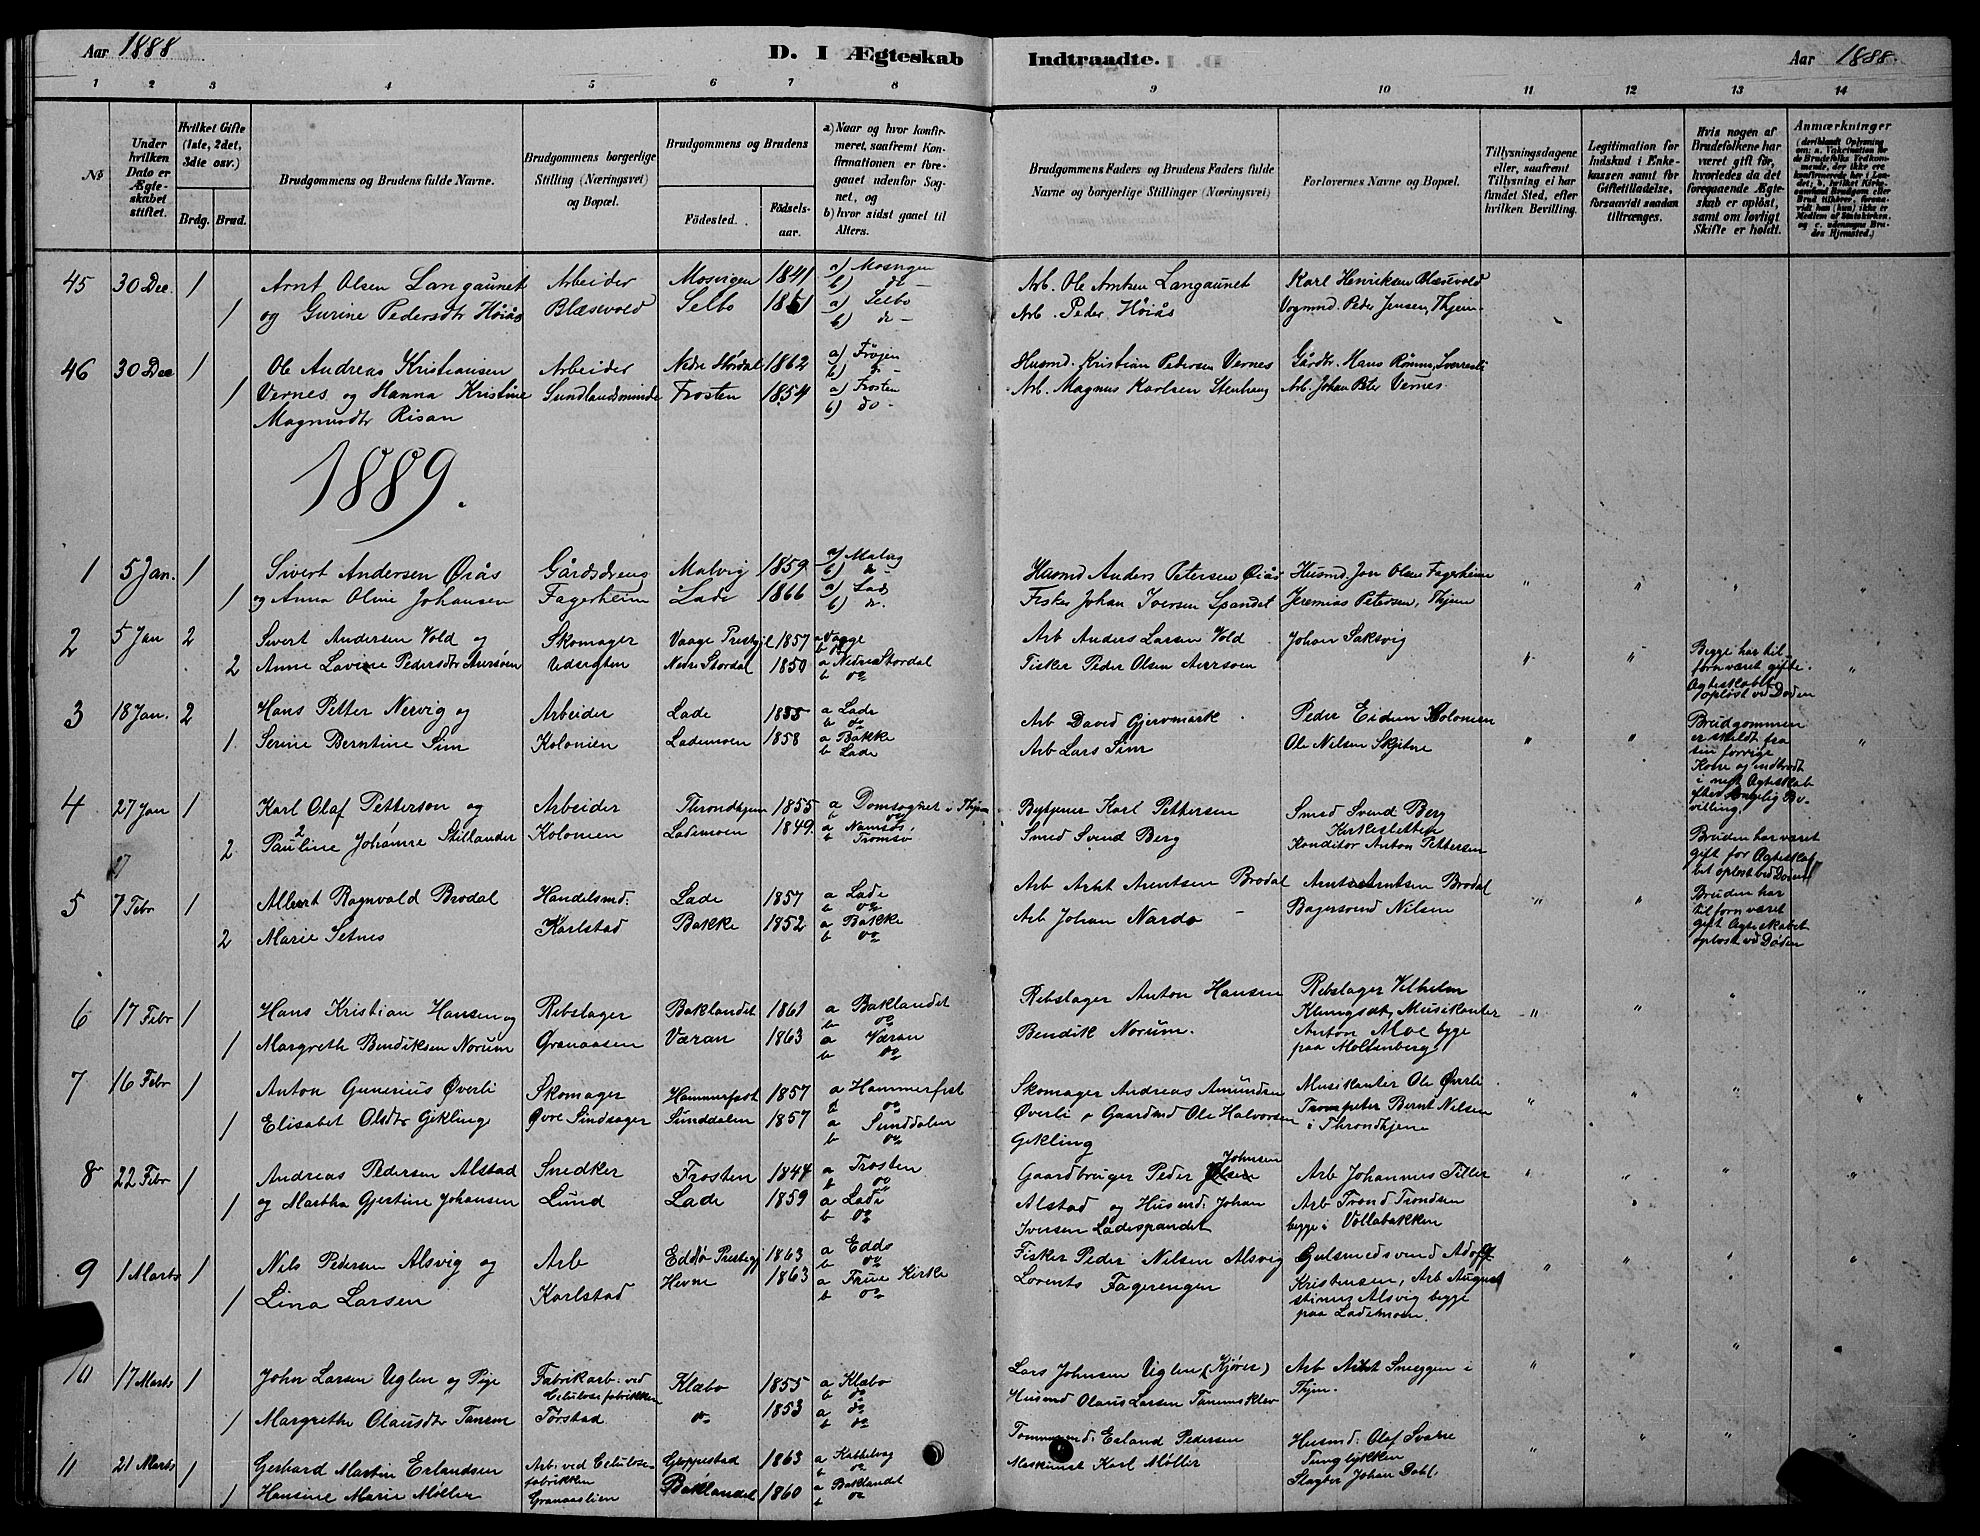 Aar 1888
D. I Ægteskab Indtraadte.
Aar 1888.
1 2 3 4 5 6 7 8 9 10 11 12 13 14
No
Under hvilken Dato er Ægteskabet stiftet.
Hvilket Gifte (1ste, 2det, 3die osv.)
Brdg. Brud.
Brudgommens og Brudens fulde Navne.
Brudgommens borgerlige Stilling (Næringsvei) og Bopæl.
Brudgommens og Brudens
Födested. Födsels-aar.
a) Naar og hvor konfirmeret, saafremt Konfirmationen er foregaaet udenfor Sognet, og
b) hvor sidst gaaet til Alters.
Brudgommens Faders og Brudens Faders fulde Navne og borgerlige Stillinger (Næringsvei)
Forlovernes Navne og Bopæl.
Tillysningsdagene eller, saafremt Tillysning ei har fundet Sted, efter hvilken Bevilling.
Legitimation for Indskud i Enkekassen samt for Giftetilladelse, forsaavidt saadan tiltrænges.
Hvis nogen af Brudefolkene har været gift för, hvorledes da det foregaaende Ægteskab er oplöst, samt om lovligt Skifte er holdt.
Anmærkninger
45 30 Dec. 1 Arnt Olsen Langaunet Arbeider Mosvigen 1841 a) Mosvigen Arb. Ole Arntsen Langaunet Karl Henriksen Blæsevold
b) do -
1 og Gurine Pedersdtr Höiås Blæsevold Selbo 1851 a) Selbo Arb. Peder Höiås Vogmnd. Peder Jensen, Thjem.
b) do -
46 30 Dec 1 Ole Andreas Kristiansen Arbeider Nedre Stördal 1862 a) Fröjen Husmd. Kristian Pedersen Vernes Gårdbr. Hans Römme,
1 Vernes og Hanna Kristine Sundlandsminde Frosten 1854 a) Frosten Arb. Magnus Karlsen Stenberg Arb. Johan Peter Vernes.
b) do -
Magnusdtr Risan
1889.
1 5 Jan. 1 Sivert Andersen Öiås Gårdsdreng Malvig 1859 a) Malvig Husmd Anders Petersen Öiås Husmd. Jon Olsen Fagerheim
b) do
1 og Anna Oline Johansen Fagerheim Lade 1866 a) Lade Fisker Johan Iversen Spandet Jeremias Petersen, Thjem
b) do.
2 5 Jan 2 Sivert Andersen Vold og Skomager Vaage Prestgjel 1857 a Vaage Arb Anders Larsen Vold Johan Saksvig
b do
2 Anne Lavine Pedersdtr Aursöen Udsigten Nedre Stordal 1850 a Nedre Stordal Fisker Peder Olsen Aursoen
b do
Begge har tilforn været gifte. Ægteskabet oplöst ved Döden
3 18 Jan. 2 Hans Petter Nervig og Arbeider Lade 1855 a Lade Arb David Gjervmark Peder Eidum Kolonien
b do
1. Serine Berntine Sim Kolonien Lademoen 1858 a Bakke Arb Lars Sim Ole Nilsen Skjetne
b Lade
Brudgommen er skildt fra sin forrige Kone og indtraadt i nyt Ægteskab efter kongelig Bevilling
4 27 Jan 1 Karl Olaf Petterson og Arbeider Throndhjem 1855 a Domsognet i Thjem Bytjener Karl Pettersen Smed Svend Berg Kirkesletten
b do
2 Pauline Johanne Stillander Kolonien Lademoen 1849 a Namsos Smed Svend Berg Konditor Anton Pettersen
b Tromsø
Bruden har været gift för Ægteskabet oplöst ved Döden
5 7 Febr 1 Albert Ragnvald Brodal Handelsmd. Lade 1857 a Lade Arb Arnt Arntsen Brodal Arnt Arntsen Brodal
b do
2 Marie Setnes Karlstad Bakke 1852 a Bakke Arb Johan Nardo Bagersvend Nilsen
b do
Bruden har tilforn været gift Ægteskabet oplöst ved Döden
6 17 Febr 1 Hans Kristian Hansen og Rebslager Baklandet 1861 a Baklandet Rebslager Anton Hansen Rebslager Vilhelm
b do
1 Margreth Bendiksen Norum Granaasen Væran 1863 a Væran Bendik Norum. Klungsdt, Musikanter
b do Anton Moe begge
paa Möllenberg
7 16 Febr 1 Anton Gunerius Överli Skomager Hammerfest 1857 a Hammerfest Skomager Andreas Amundsen Musikanter Ole Överli
b do
1 Elisabet Olsdtr Gikling Övre Sindsager Sunddalen 1857 a Sunddalen Överli o Gaardmd Ole Halvorsen Trompeter Bernt Nilsen
b do Gikling i Throndhjem
8 22 Febr 1 Andreas Pedersen Alstad Snedker Frosten 1844 a Frosten Gaardbruger Peder Johnsen Arb Johannes Tiller
b do
1 og Martha Gjertine Johansen Lund Lade 1859 a Lade Alstad og Husmd. Johan Arb Trond Trondsen
b do Iversen Ladespandet begge i Vollabakken
9 1 Marts 1 Nils Pedersen Alsvig og Arb Eddö Prestegj 1863 a Eddö Fisker Peder Nilsen Alsvig Gulsmedsvend Adolf
b do
1 Lina Larsen Karlstad Hevne 1863 a Frue Kirke Lorents Fagerengen Kristensen, Arb August
b do stinus Alsvig begge
paa Lademoen.
10 17 Marts 1 John Larsen Uglen og Pige Fabrikarb. ved Celulosefabrikken Klæbo 1855 a Klæbo Lars Johnsen Uglen (Kjörer) Arb Arnt Sneggen i
b do Thjem.
1 Margrethe Olausdtr Tanem Torstad do 1853 a do Husmd Olaus Larsen Tanemsklev
b do
11 21 Marts 1 Gerhard Martin Erlandsen Arb. ved Celulosefabrikken Gloppestad 1863 a Kabbelvag Tommermd. Erland Pedersen Husmd. Olaf Svarre
b do Tunglykken
1 Hansine Marie Möller Granaaslien Baklandet 1860 a Baklandet Maskinist Karl Möller Slagter Johan Dahl.
b do